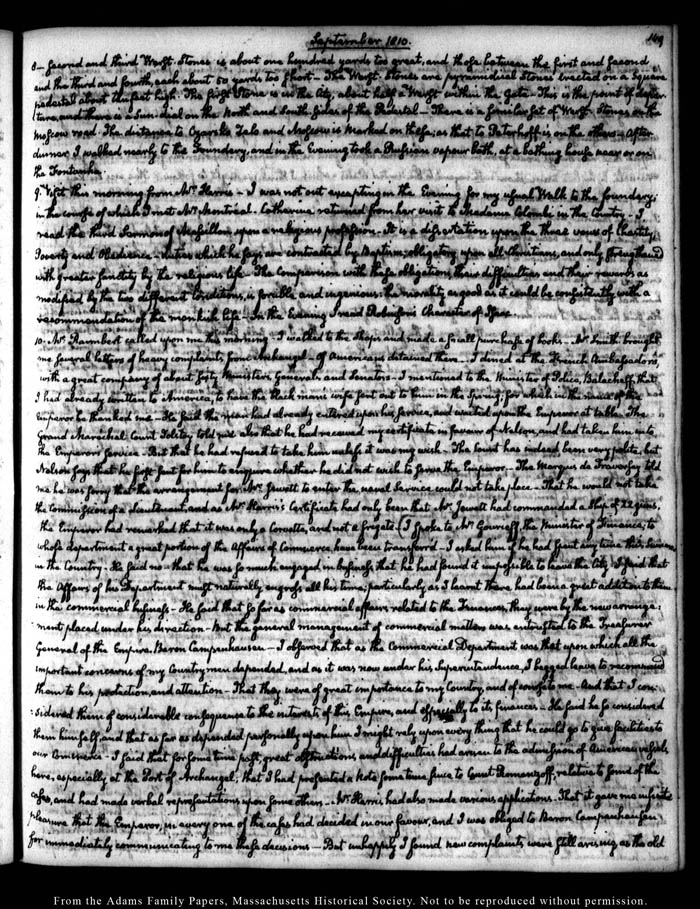 September 1810.
149
8— second and third Werst-Stones is about one hundred yards too great, and those between the first and second
and the third and fourth, each about 50 yards too short— The Werst-Stones are pyramidical Stones erected on a square
pedestal about ten feet high. The first Stone is in the City, about half a Werst within the Gate— This is the point of depar-
ture, and there is a Sun-dial on the North and South sides of the Pedestal— There is a similar set of Werst-Stones on the
Moscow road. The distance to Czarsko Zelo and Moscow is marked on these; as that to Peterhoff is on the others— After
dinner I walked nearly to the Foundery, and in the Evening took a Russian vapour bath, at a bathing house near or on
the Fontanka.
9. Visit this morning from Mr. Harris— I was not out excepting in the Evening for my usual Walk to the foundery;
in the course of which I met Mr. Montreal. Catherine returned from her visit to Madame Colombi in the Country— I
read the third Sermon of Massillon, upon a religious profession. It is a dissertation upon the three vows of Chastity,
Poverty and Obedience— duties which he says are contracted by Baptism; obligatory upon all Christians, and only strengthened
with greater sanctity by the religious life— The comparison with these obligations, their difficulties and their rewards as
modified by the two different Conditions, is forcible and ingenious: the morality as good as it could be consistently with a
recommendation of the monkish life— In the Evening I read
10. Mr. Rambert called upon me this morning— I walked to the shops and made a small purchase of books— Mr. Smith brought
me several letters of heavy complaints from Archangel— of Americans detained there— I dined at the French Ambassador's,
with a great company of about forty Ministers, Generals and Senators— I mentioned to the Minister of Police, Balacheff, that
I had already written to America, to have the black man's wife sent out to him in the Spring; for which in the name of the
Emperor he thanked me— He said the man had already entered upon his service, and waited upon the Emperor at table. The
Grand Marechal Count Tolstoy told me also that he had received my certificate in favour of Nelson, and had taken him into
the Emperor's Service— But that he had refused to take him unless it was my wish— The Count has indeed been very polite, but
Nelson says that he first sent for him to enquire whether he did not wish to serve the Emperor— The Marquis de Traversay told
me he was sorry that the arrangement for Mr. Jewett to enter the naval Service could not take place— That he would not take
the Commission of a Lieutenant, and as Mr. Harris's Certificate had only been that Mr. Jewett had commanded a Ship of 22 guns,
the Emperor had remarked that it was only a Corvette, and not a frigate. I spoke to Mr. Gourieff, the Minister of Finance, to
whose department a great portion of the Affairs of Commerce, have been transferred— I asked him if he had spent any time this Summer
in the Country— He said no— that he was so much engaged in business that he had found it impossible to leave the City. I said that
the Affairs of his Department must naturally engross all his time; particularly as I learnt there had been a great addition to them
in the commercial business— He said that so far as commercial affairs related to the Finances, they were by the new arrange:
ment placed under his direction— But the general management of commercial matters was entrusted to the Treasurer
General of the Empire Baron Campenhausen— I observed that as the Commercial Department was that upon which all the
important concerns of my Countrymen depended, and as it was now under his Superintendence, I begged leave to recommend
them to his protection, and attention— That they were of great importance to my Country, and of course to me— And that I con:
:sidered them of considerable consequence to the interests of this Empire, and especially to its finances— He said he so considered
them himself, and that as far as depended personally upon him I might rely upon every thing that he could go to give facilities to
our Commerce— I said that for some time past, great obstructions, and difficulties had arisen to the admission of American vessels,
here, especially at the Port of Archangel; that I had presented a Note some time since to Count Romanzoff, relative to some of the
cases, and had made verbal representations upon some others— Mr. Harris had also made various applications. That it gave me infinite
pleasure that the Emperor, in every one of the cases had decided in our favour, and I was obliged to Baron Campenhausen
for immediately communicating to me these decisions— But unhappily I found new complaints were still arising, as the old
From the Adams Family Papers, Massachusetts Historical Society. Not to be reproduced without permission.